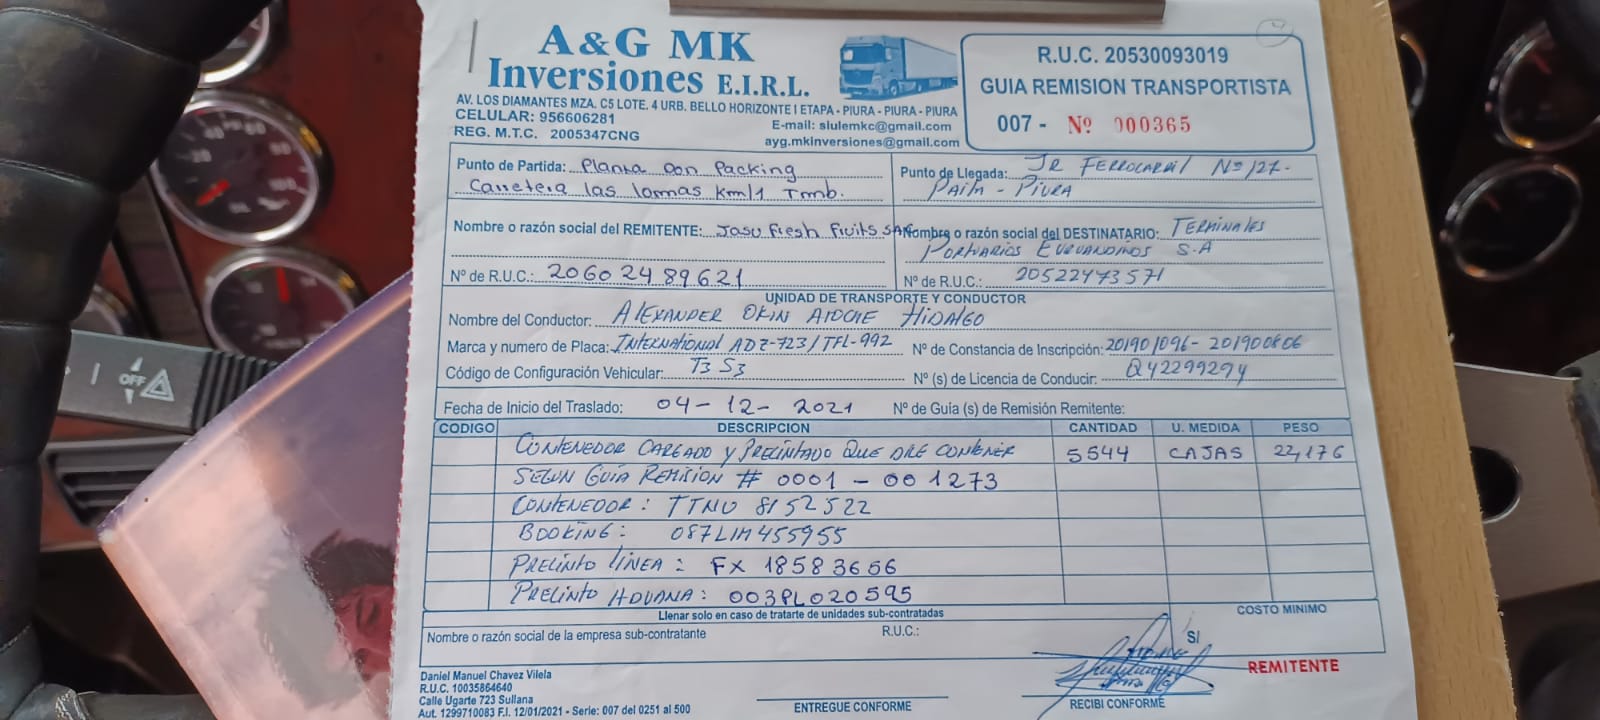 A & G MK
Inversiones E.I.R.L.
AV. LOS DIAMANTES MZA. C5 LOTE. 4 URB. BELLO HORIZONTE I ETAPA - PIURA - PIURA - PIURA
CELULAR: 956606281
E-mail: slulemkc@gmail.com
REG. M.T.C. 2005347CNG
ayg.mkinversiones@gmail.com
R.U.C. 20530093019
GUIA REMISION TRANSPORTISTA
007 - Nº 000365
Punto de Partida: Planta Don Packing
Carretera las lomas Km/1 Tmb.
Punto de Llegada: JR FERROCARRIL Nº 127-
PAITA - PIURA
Nombre o razón social del REMITENTE: Jasu Fresh Fruits SAC
Nombre o razón social del DESTINATARIO: TERMINALES
PORTUARIOS EUROANDINOS S.A
Nº de R.U.C.: 20602489621
Nº de R.U.C.: 20522473571
UNIDAD DE TRANSPORTE Y CONDUCTOR
Nombre del Conductor: ALEXANDER OKIN ATOCHE HIDALGO
Marca y numero de Placa: INTERNATIONAL ADZ-723/TFL-992
Nº de Constancia de Inscripción: 201901096- 201900606
Código de Configuración Vehicular: T3 S3
Nº (s) de Licencia de Conducir: Q42299294
Fecha de Inicio del Traslado: 04-12-2021
Nº de Guía (s) de Remisión Remitente:
CODIGO DESCRIPCION CANTIDAD U. MEDIDA PESO
CONTENEDOR CARGADO Y PRECINTADO QUE DICE CONTENER 5544 CAJAS 22,176
SEGUN GUIA REMISION # 0001 - 001273
CONTENEDOR: TTNU 8152522
BOOKING: 087LIM455955
PRECINTO LINEA: FX 18583656
PRECINTO ADUANA: 003PL020595
Llenar solo en caso de tratarte de unidades sub-contratadas
COSTO MINIMO
Nombre o razón social de la empresa sub-contratante
R.U.C.:
S/
REMITENTE
Daniel Manuel Chavez Vilela
R.U.C. 10035864640
Calle Ugarte 723 Sullana
Aut. 1299710083 F.I. 12/01/2021 - Serie: 007 del 0251 al 500
ENTREGUE CONFORME
RECIBI CONFORME
OFF